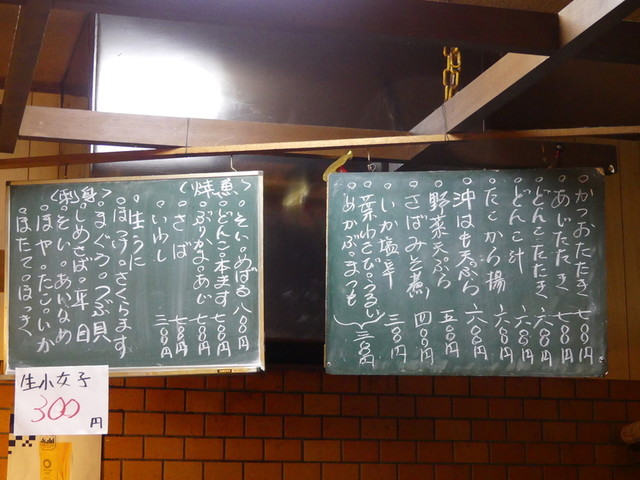 かつおたたき 七〇〇円
あじたたき 七〇〇円
どんこたたき 六〇〇円
どんこ汁 六〇〇円
たこから揚 六〇〇円
沖はも天ぷら 六〇〇円
野菜天ぷら 五〇〇円
さばみそ煮 四〇〇円
いか塩辛 三〇〇円
葉わさび・うるい
めかぶ・まつも 三〇〇円
〈焼魚〉
そい・めばる 八〇〇円
どんこ・本ます 七〇〇円
ぶりかま・あじ 七〇〇円
さば 七〇〇円
いわし 三〇〇円
〈刺身〉
生うに
ほっけ・さくらます
まぐろ・つぶ貝
しめさば・平目
そい・あいなめ
ほや・たこ・いか
ほたて・ほっき
生小女子
300円
Asahi